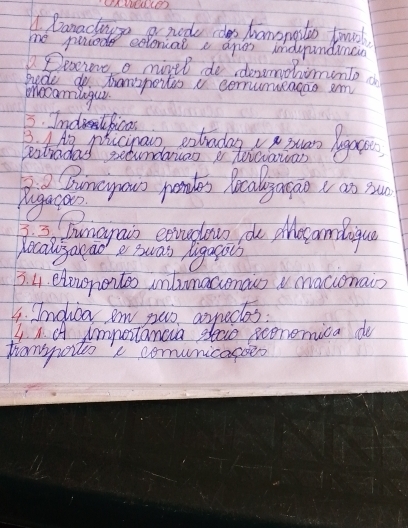 Exercícios
1. Caracterize a rede dos transportes terrestre
no período colonial e após independência
2. Descreve o nível de desenvolvimento da
rede de transportes e comunicação em
moçambique.
3. Indentifica:
3.1 As principais estradas e suas ligações,
estradas secundárias e terciarias.
3.2 Principais portos localização e as suas
ligações.
3.3. Principais corredores de Moçambique
localização e suas ligações
3.4 Aeroportos internacionais e nacionais
4. Indica em seis aspectos:
4.1. A importância socio economica de
transportes e comunicações